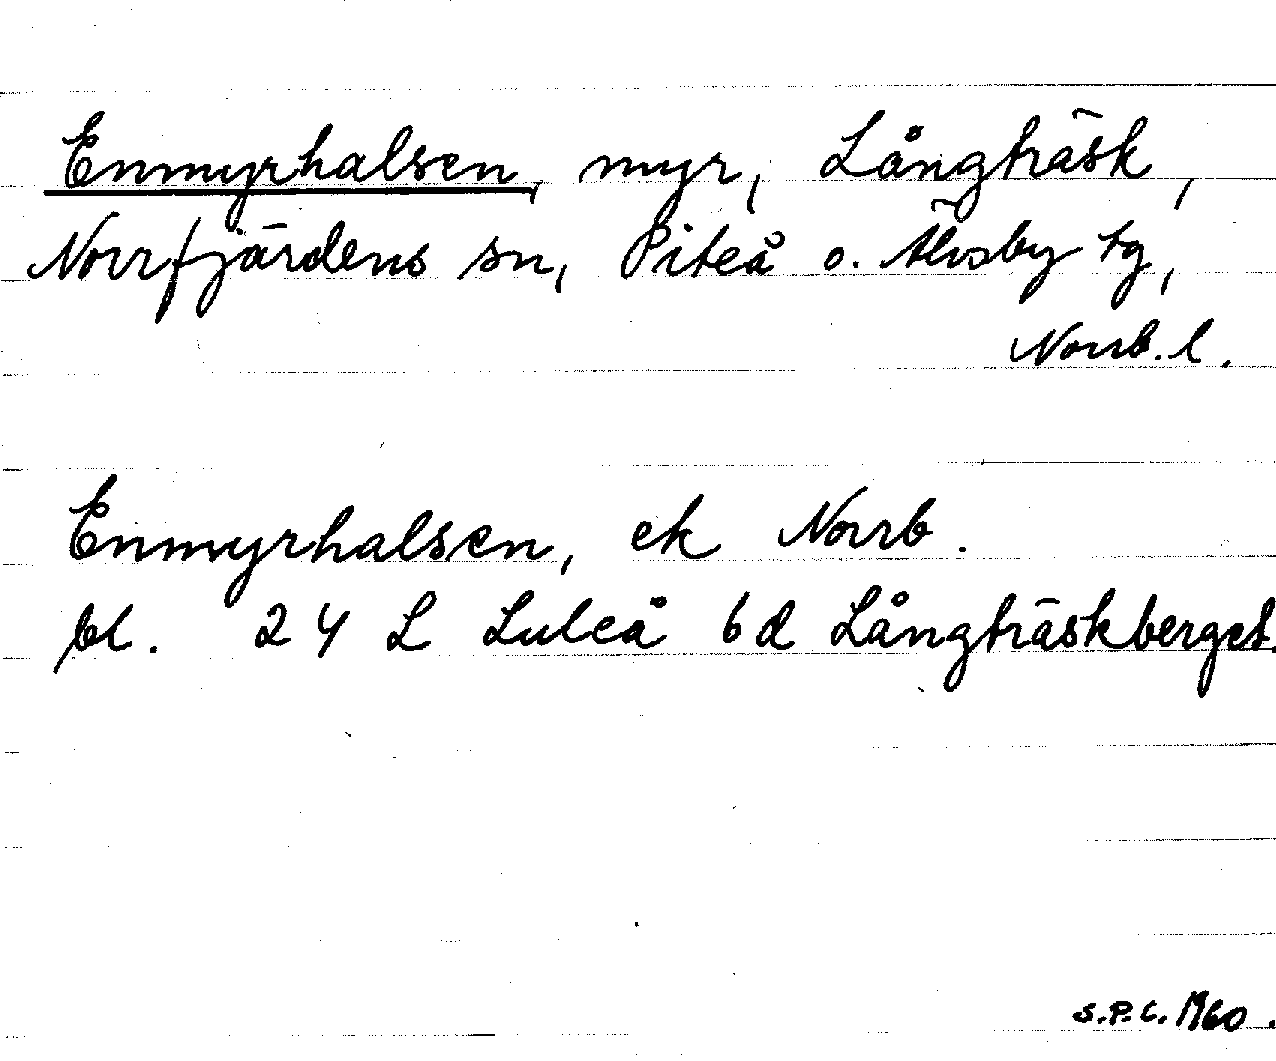 Enmyrhalsen, myr, Långträsk,
Norrfjärdens sn, Piteå o. Älvsby tg,
Norrb. l.
Enmyrhalsen, ek Norrb.
bl. 24 L Luleå 6d Långträskberget.
S.P.C. 1960.